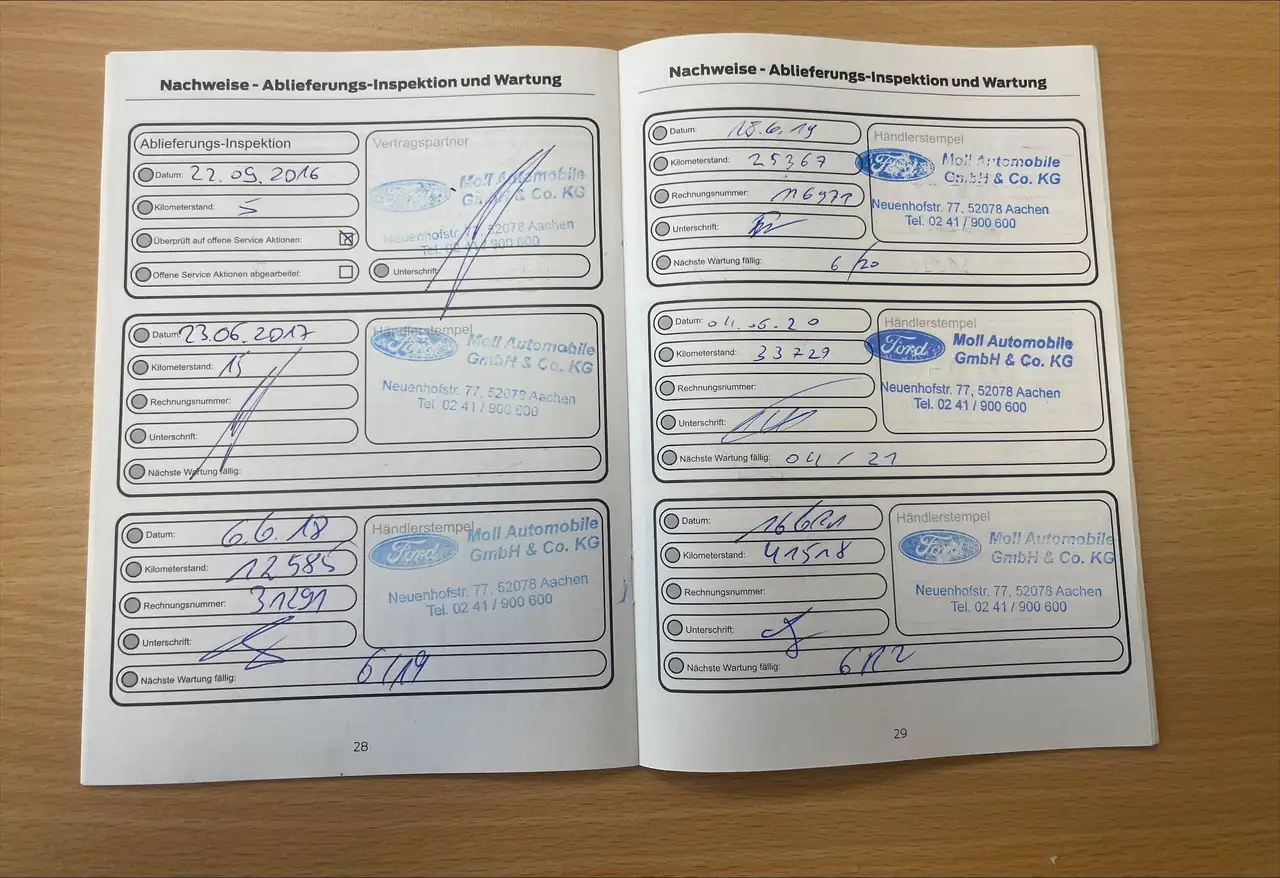 Nachweise - Ablieferungs-Inspektion und Wartung
Ablieferungs-Inspektion
Datum: 22.09.2016
Kilometerstand: 5
Überprüft auf offene Service Aktionen:
Offene Service Aktionen abgearbeitet:
Vertragspartner
Ford
Moll Automobile
GmbH & Co. KG
Neuenhofstr. 77, 52078 Aachen
Tel. 02 41 / 900 600
Unterschrift:
Datum: 23.06.2017
Kilometerstand: 15
Rechnungsnummer:
Unterschrift:
Nächste Wartung fällig:
Händlerstempel
Ford
Moll Automobile
GmbH & Co. KG
Neuenhofstr. 77, 52078 Aachen
Tel. 02 41 / 900 600
Datum: 6.6.18
Kilometerstand: 12585
Rechnungsnummer: 31291
Unterschrift:
Nächste Wartung fällig: 6/19
Händlerstempel
Ford
Moll Automobile
GmbH & Co. KG
Neuenhofstr. 77, 52078 Aachen
Tel. 02 41 / 900 600
28
Nachweise - Ablieferungs-Inspektion und Wartung
Datum: 18.6.19
Kilometerstand: 25367
Rechnungsnummer: 116971
Unterschrift:
Nächste Wartung fällig: 6/20
Händlerstempel
Ford
Moll Automobile
GmbH & Co. KG
Neuenhofstr. 77, 52078 Aachen
Tel. 02 41 / 900 600
Datum: 04.06.20
Kilometerstand: 33729
Rechnungsnummer:
Unterschrift:
Nächste Wartung fällig: 04/21
Händlerstempel
Ford
Moll Automobile
GmbH & Co. KG
Neuenhofstr. 77, 52078 Aachen
Tel. 02 41 / 900 600
Datum:
Kilometerstand: 41518
Rechnungsnummer:
Unterschrift:
Nächste Wartung fällig:
Händlerstempel
Ford
Moll Automobile
GmbH & Co. KG
Neuenhofstr. 77, 52078 Aachen
Tel. 02 41 / 900 600
29